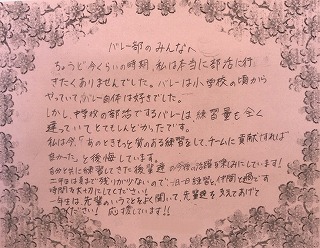 バレー部のみんなへ
ちょうど今くらいの時期、私は本当に部活に行
きたくありませんでした。バレーは小学校の頃から
やっていて、バレー自体は好きでした。
しかし、中学校の部活でするバレーは、練習量も全く
違っていてとてもしんどかったです。
私は今「あのときもっと質のある練習をして、チームに貢献すれば
良かった。」と後悔しています。
自分と共に練習してきた後輩達の今後の活躍を楽しみにしています!
二年生は夏まで残りが少ないので、一日一日練習を、仲間と過ごす
時間を大切にしてください!
一年生は、先輩のいうことをよく聞いて、先輩達を支えてあげて
ください! 応援しています!!